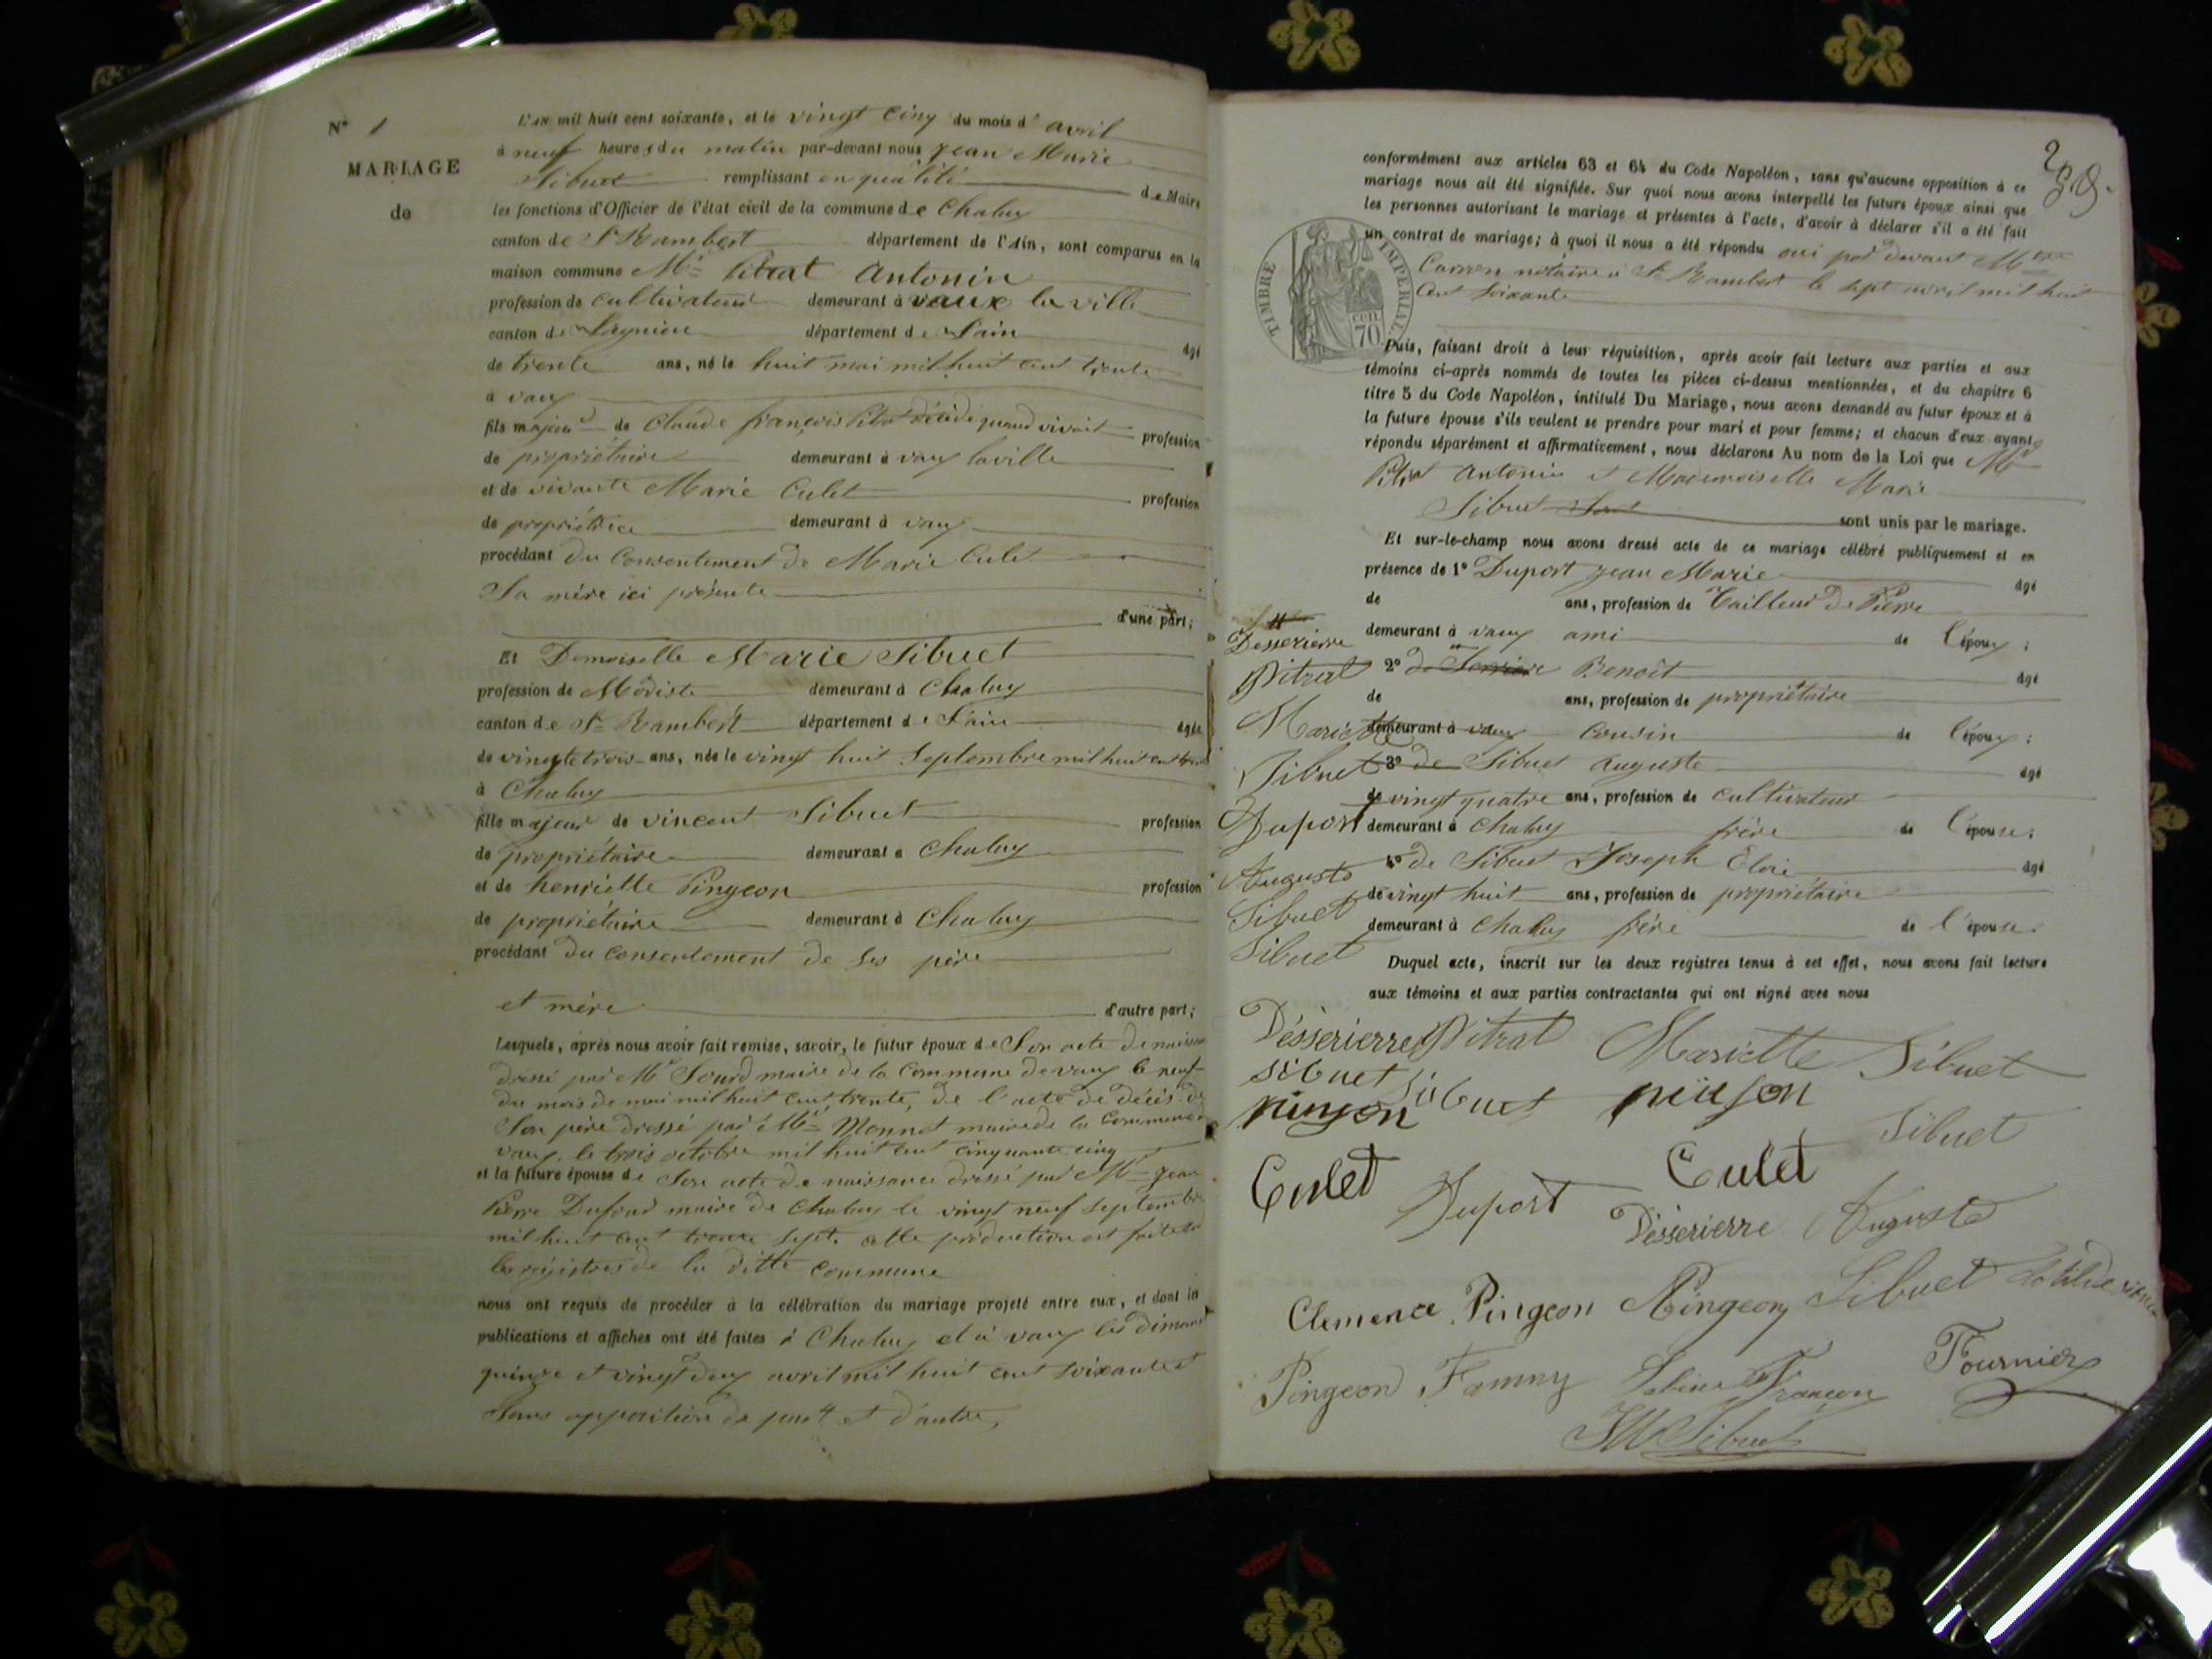 N° 1
MARIAGE
de
L'an mil huit cent soixante, et le vingt cinq du mois d' avril
à neuf heures du matin par-devant nous jean Marie
Sibuet remplissant en qualité de Maire
les fonctions d'Officier de l'état civil de la commune de Chaley
canton de St Rambert département de l'Ain, sont comparus en la
maison commune Mr Pitrat Antonin
profession de cultivateur demeurant à vaux la ville
canton de Lagnieu département de L'ain âgé
de trente ans, né le huit mai mil huit cent trente
à vaux
fils majeur de Claude françois Pitrat décédé quand vivait profession
de propriétaire demeurant à vaux laville
et de vivante Marie Culet profession
de propriétrice demeurant à vaux
procédant du Consentement de Marie Culet
Sa mère ici présente
d'une part;
Et Demoiselle Marie Sibuet
profession de Modiste demeurant à Chaley
canton de St Rambert département de L'ain âgée
de vingt et trois ans, née le vingt huit Septembre mil huit cent
à Chaley
fille majeur de vincent Sibuet profession
de propriétaire demeurant à Chaley
et de henriette Pingeon profession
de propriétaire demeurant à Chaley
procédant du consentement de ses père
et mère d'autre part;
Lesquels, après nous avoir fait remise, savoir, le futur époux de Son acte de
dressé par Mr Sourd maire de la Commune de vaux le neuf
du mois de mai mil huit cent trente, de l'acte de décès de
Son père dressé par Mr Monnet maire de la Commune
vaux, le trois octobre mil huit cent cinquante cinq
et la future épouse de Son acte de naissance dressé par Mr jean
Pierre Dufour maire de Chaley le vingt neuf septembre
mil huit cent trente sept. cette production est faite
les régistres de la ditte commune
nous ont requis de procéder à la célébration du mariage projeté entre eux, et dont la
publications et affiches ont été faites à Chaley et à vaux les
quinze et vingt deux avril mil huit cent soixante et
Sans opposition de part et d'autre,
conformément aux articles 63 et 64 du Code Napoléon, sans qu'aucune opposition à ce
mariage nous ait été signifiée. Sur quoi nous avons interpellé les futurs époux ainsi que
les personnes autorisant le mariage et présentes à l'acte, d'avoir à déclarer s'il a été fait
un contrat de mariage; à quoi il nous a été répondu oui par devant
notaire à St Rambert le sept avril mil huit
Cent soixante
TIMBRE IMPÉRIAL
cen. 70
Puis, faisant droit à leur réquisition, après avoir fait lecture aux parties et aux
témoins ci-après nommés de toutes les pièces ci-dessus mentionnées, et du chapitre 6
titre 5 du Code Napoléon, intitulé Du Mariage, nous avons demandé au futur époux et à
la future épouse s'ils veulent se prendre pour mari et pour femme; et chacun d'eux ayant
répondu séparément et affirmativement, nous déclarons Au nom de la Loi que Mr
Pitrat Antonin et Mademoiselle Marie
Sibuet sont unis par le mariage.
Et sur-le-champ nous avons dressé acte de ce mariage célébré publiquement et en
présence de 1° Duport jean Marie âgé
de ans, profession de Tailleur de Pierre
demeurant à vaux ami de l'époux;
2° de Benoît âgé
de ans, profession de propriétaire
demeurant à vaux cousin de l'époux;
3° de Sibuet auguste âgé
de vingt quatre ans, profession de cultivateur
demeurant à Chaley frère de l'épouse;
4° de Sibuet Joseph Eloi âgé
de vingt huit ans, profession de propriétaire
demeurant à Chaley frère de l'épouse.
Desserierre
Pitrat
Mariette
Sibuet
Duport
Auguste
Sibuet
Sibuet
Duquel acte, inscrit sur les deux registres tenus à cet effet, nous avons fait lecture
aux témoins et aux parties contractantes qui ont signé avec nous
Désserierre Pitrat Mariette Sibuet
sibuet Sibuet
Sibuet
Culet Duport Culet
Désserierre Auguste
Clemence Pingeon Pingeon Sibuet
Pingeon Fanny Françon Fournier
JM Sibuet